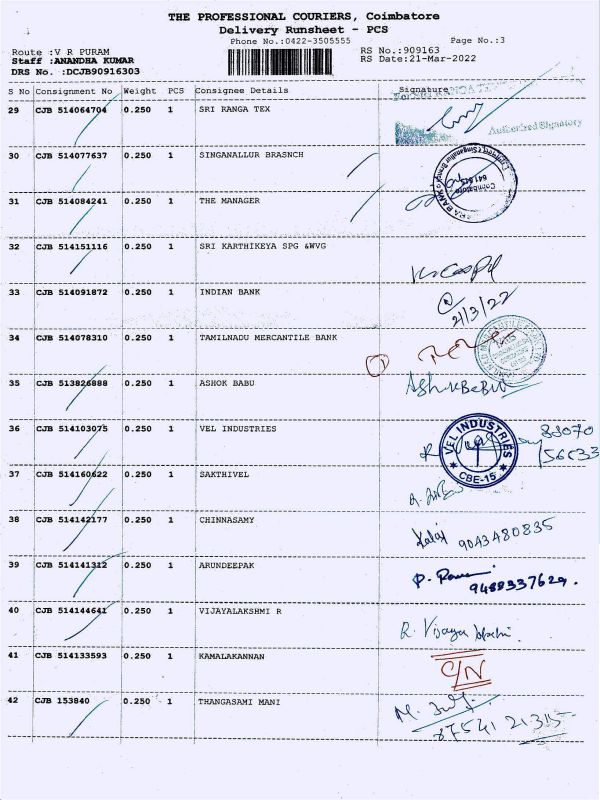 THE PROFESSIONAL COURIERS, Coimbatore
Delivery Runsheet - PCS
Phone No.:0422-3505555
Page No.:3
Route :V R PURAM
RS No.:909163
Staff :ANANDHA KUMAR
RS Date:21-Mar-2022
DRS No. :DCJB90916303
S No Consignment No Weight PCS Consignee Details Signature
29 CJB 514064704 0.250 1 SRI RANGA TEX
Authorized Signatory
30 CJB 514077637 0.250 1 SINGANALLUR BRASNCH
31 CJB 514084241 0.250 1 THE MANAGER
32 CJB 514151116 0.250 1 SRI KARTHIKEYA SPG &WVG
33 CJB 514091872 0.250 1 INDIAN BANK
2/3/22
34 CJB 514078310 0.250 1 TAMILNADU MERCANTILE BANK
1
35 CJB 513826888 0.250 1 ASHOK BABU AshokBabu
36 CJB 514103075 0.250 1 VEL INDUSTRIES
VEL INDUSTRIES
CBE-15
37 CJB 514160622 0.250 1 SAKTHIVEL
38 CJB 514142177 0.250 1 CHINNASAMY
9043480835
39 CJB 514141312 0.250 1 ARUNDEEPAK
9488337629.
40 CJB 514144641 0.250 1 VIJAYALAKSHMI R
41 CJB 514133593 0.250 1 KAMALAKANNAN C/N
42 CJB 153840 0.250 1 THANGASAMI MANI
87541 21315